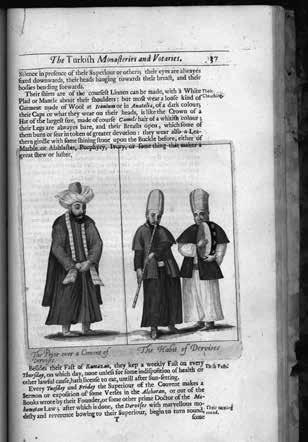 The Turkish Monasteries and Votaries. 37
Silence in presence of their Superiour or others; their eyes are alwayes
fixed downwards, their heads hanging towards their breast, and their
bodies bending forwards.
Their shirts are of the coursest Linnen can be made, with a White Their
Plad or Mantle about their shoulders: but most wear a loose kind of Cloathing.
Garment made of Wool at Iconium or in Anatolia, of a dark colour;
their Caps or what they wear on their heads, is like the Crown of a
Hat of the largest size, made of course Camels hair of a whitish colour;
their Legs are alwayes bare, and their Breasts open, which some of
them burn or sear in token of greater devotion: they wear also a Lea-
thern girdle with some shining stone upon the Buckle before, either of
Marble or Alabaster, Porphyry, Ivory, or some thing that makes a
great shew or luster.
The Prior over a Convent of
Dervises.
The Habit of Dervises
Besides their Fast of Ramazan, they kep a weekly Fast on every
Thursday, on which day, none unless for some indisposition of health or Their Fasts.
other lawful cause, hath license to eat, untill after Sun-setting.
Every Tuesday and Friday the Superiour of the Convent makes a
Sermon or exposition of some Verses in the Alchoran, or out of the
Books wrote by their Founder, or some other prime Doctor of the Ma-
hometan Law; after which is done, the Dervises with marvellous mo-
desty and reverence bowing to their Superiour, begin to turn round, Their turning
round.
T some